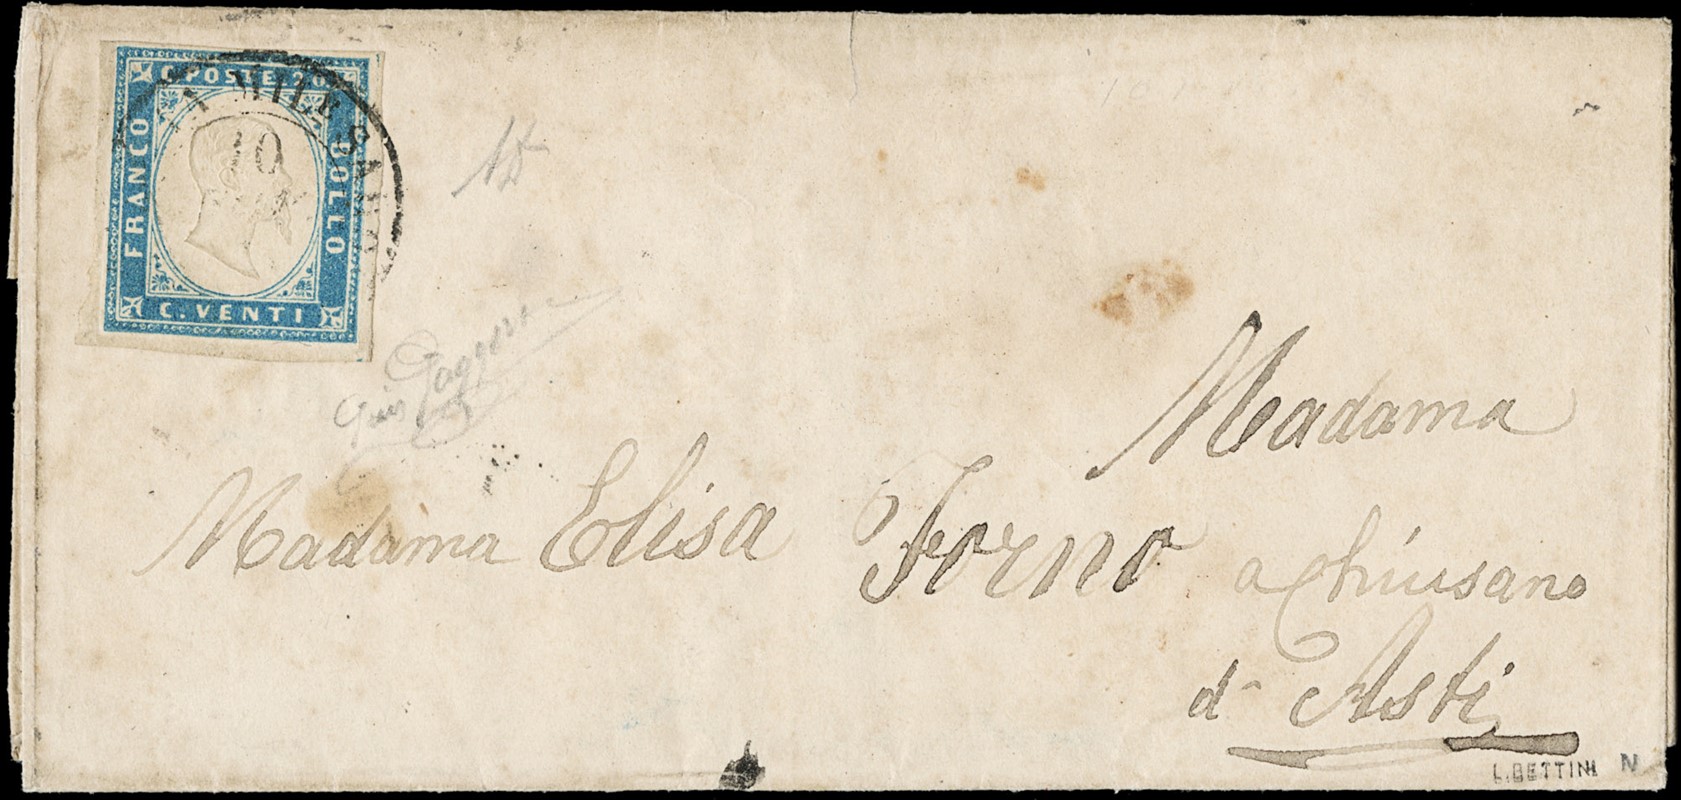 C. POSTE 20
FRANCO
BOLLO
C. VENTI
10
Madama
Madama Elisa Forno a Chiusano
d' Asti
L. BETTINI N